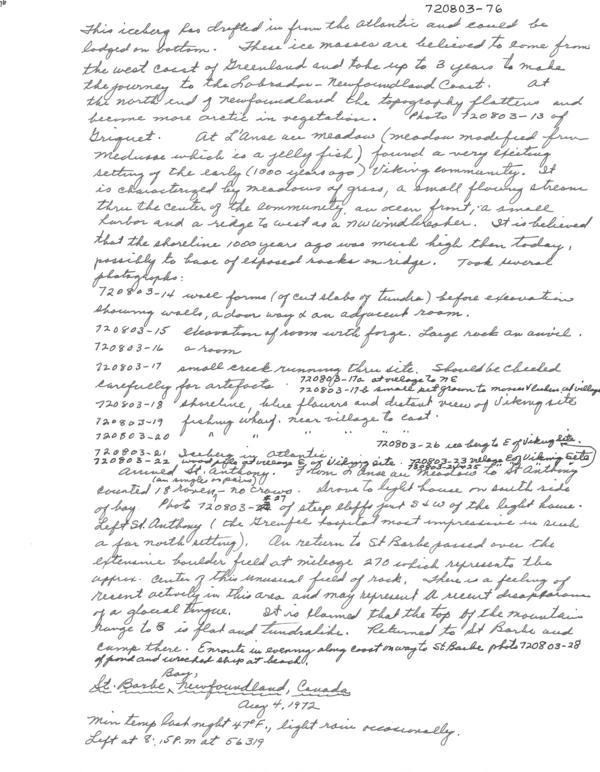 720803-76
This iceberg has drifted in from the Atlantic and could be
lodged on bottom. These ice masses are believed to come from
the west coast of Greenland and take up to 3 years to make
the journey to the Labrador-Newfoundland Coast. At
the north end of Newfoundland the topography flattens and
become more arctic in vegetation. Photo 720803-13 of
Griquet. At L'Anse au meadow (meadow modified from
Medusae which is a jelly fish) found a very exciting
setting of the early (1000 years ago) Viking community. It
is characterized by meadows of grass, a small flowing stream
thru the center of the community, an ocean front, a small
harbor and a ridge to west as a NW windbreaker. It is believed
that the shoreline 1000 years ago was much high than today,
possibly to base of exposed rocks on ridge. Took several
photographs:
720803-14 wall forms (of cut slabs of tundra) before excavation
showing walls, a door way & an adjacent room.
720803-15 elevation of room with forge. Large rock an anvil.
720803-16 a room
720803-17 small creek running thru site. Should be checked
carefully for artifacts. 720803-17a at village to NE
720803-17b small pet grown to mosses & lichens at village
720803-18 shoreline, blue flowers and distant view of Viking site
720803-19 fishing wharf. near village to east.
720803-20 " " " " " "
720803-26 iceberg to E of Viking site.
720803-21 Iceberg in Atlantic.
720803-22 wood piles at village E of Viking site. 720803-23 village E of Viking site
720803-24+25 " " "
Arrived St. Anthony. From L'Anse au Meadow to St Anthony
(in singles or pairs)
counted 18 ravens - no crows. Drove to light house on south side
of bay. Photo 720803-27 of steep cliffs just S & W of the light house.
Left St. Anthony (the Grenfel hospital most impressive in such
a far north setting). On return to St Barbe passed over the
extensive boulder field at mileage 270 which represents the
approx. center of this unusual field of rock. There is a feeling of
recent activity in this area and may represent a recent disappearance
of a glacial tongue. It is claimed that the top of the mountain
range to S is flat and tundralike. Returned to St Barbe and
camp there. Enroute in evening along coast on way to St Barbe photo 720803-28
of pond and wrecked ship at beach.
St. Barbe Bay, Newfoundland, Canada
Aug 4, 1972
Min temp last night 47°F., light rain occasionally.
Left at 8:15 P.m at 56319